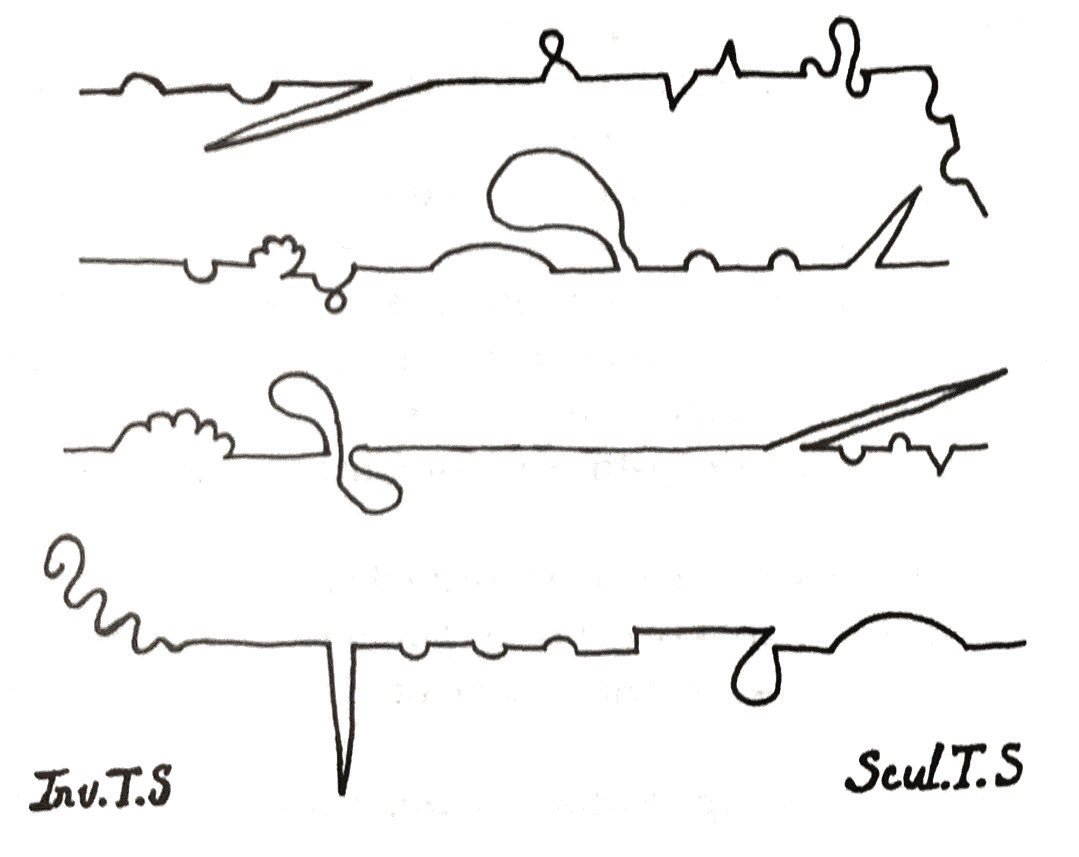 Inv.T.S
Scul.T.S